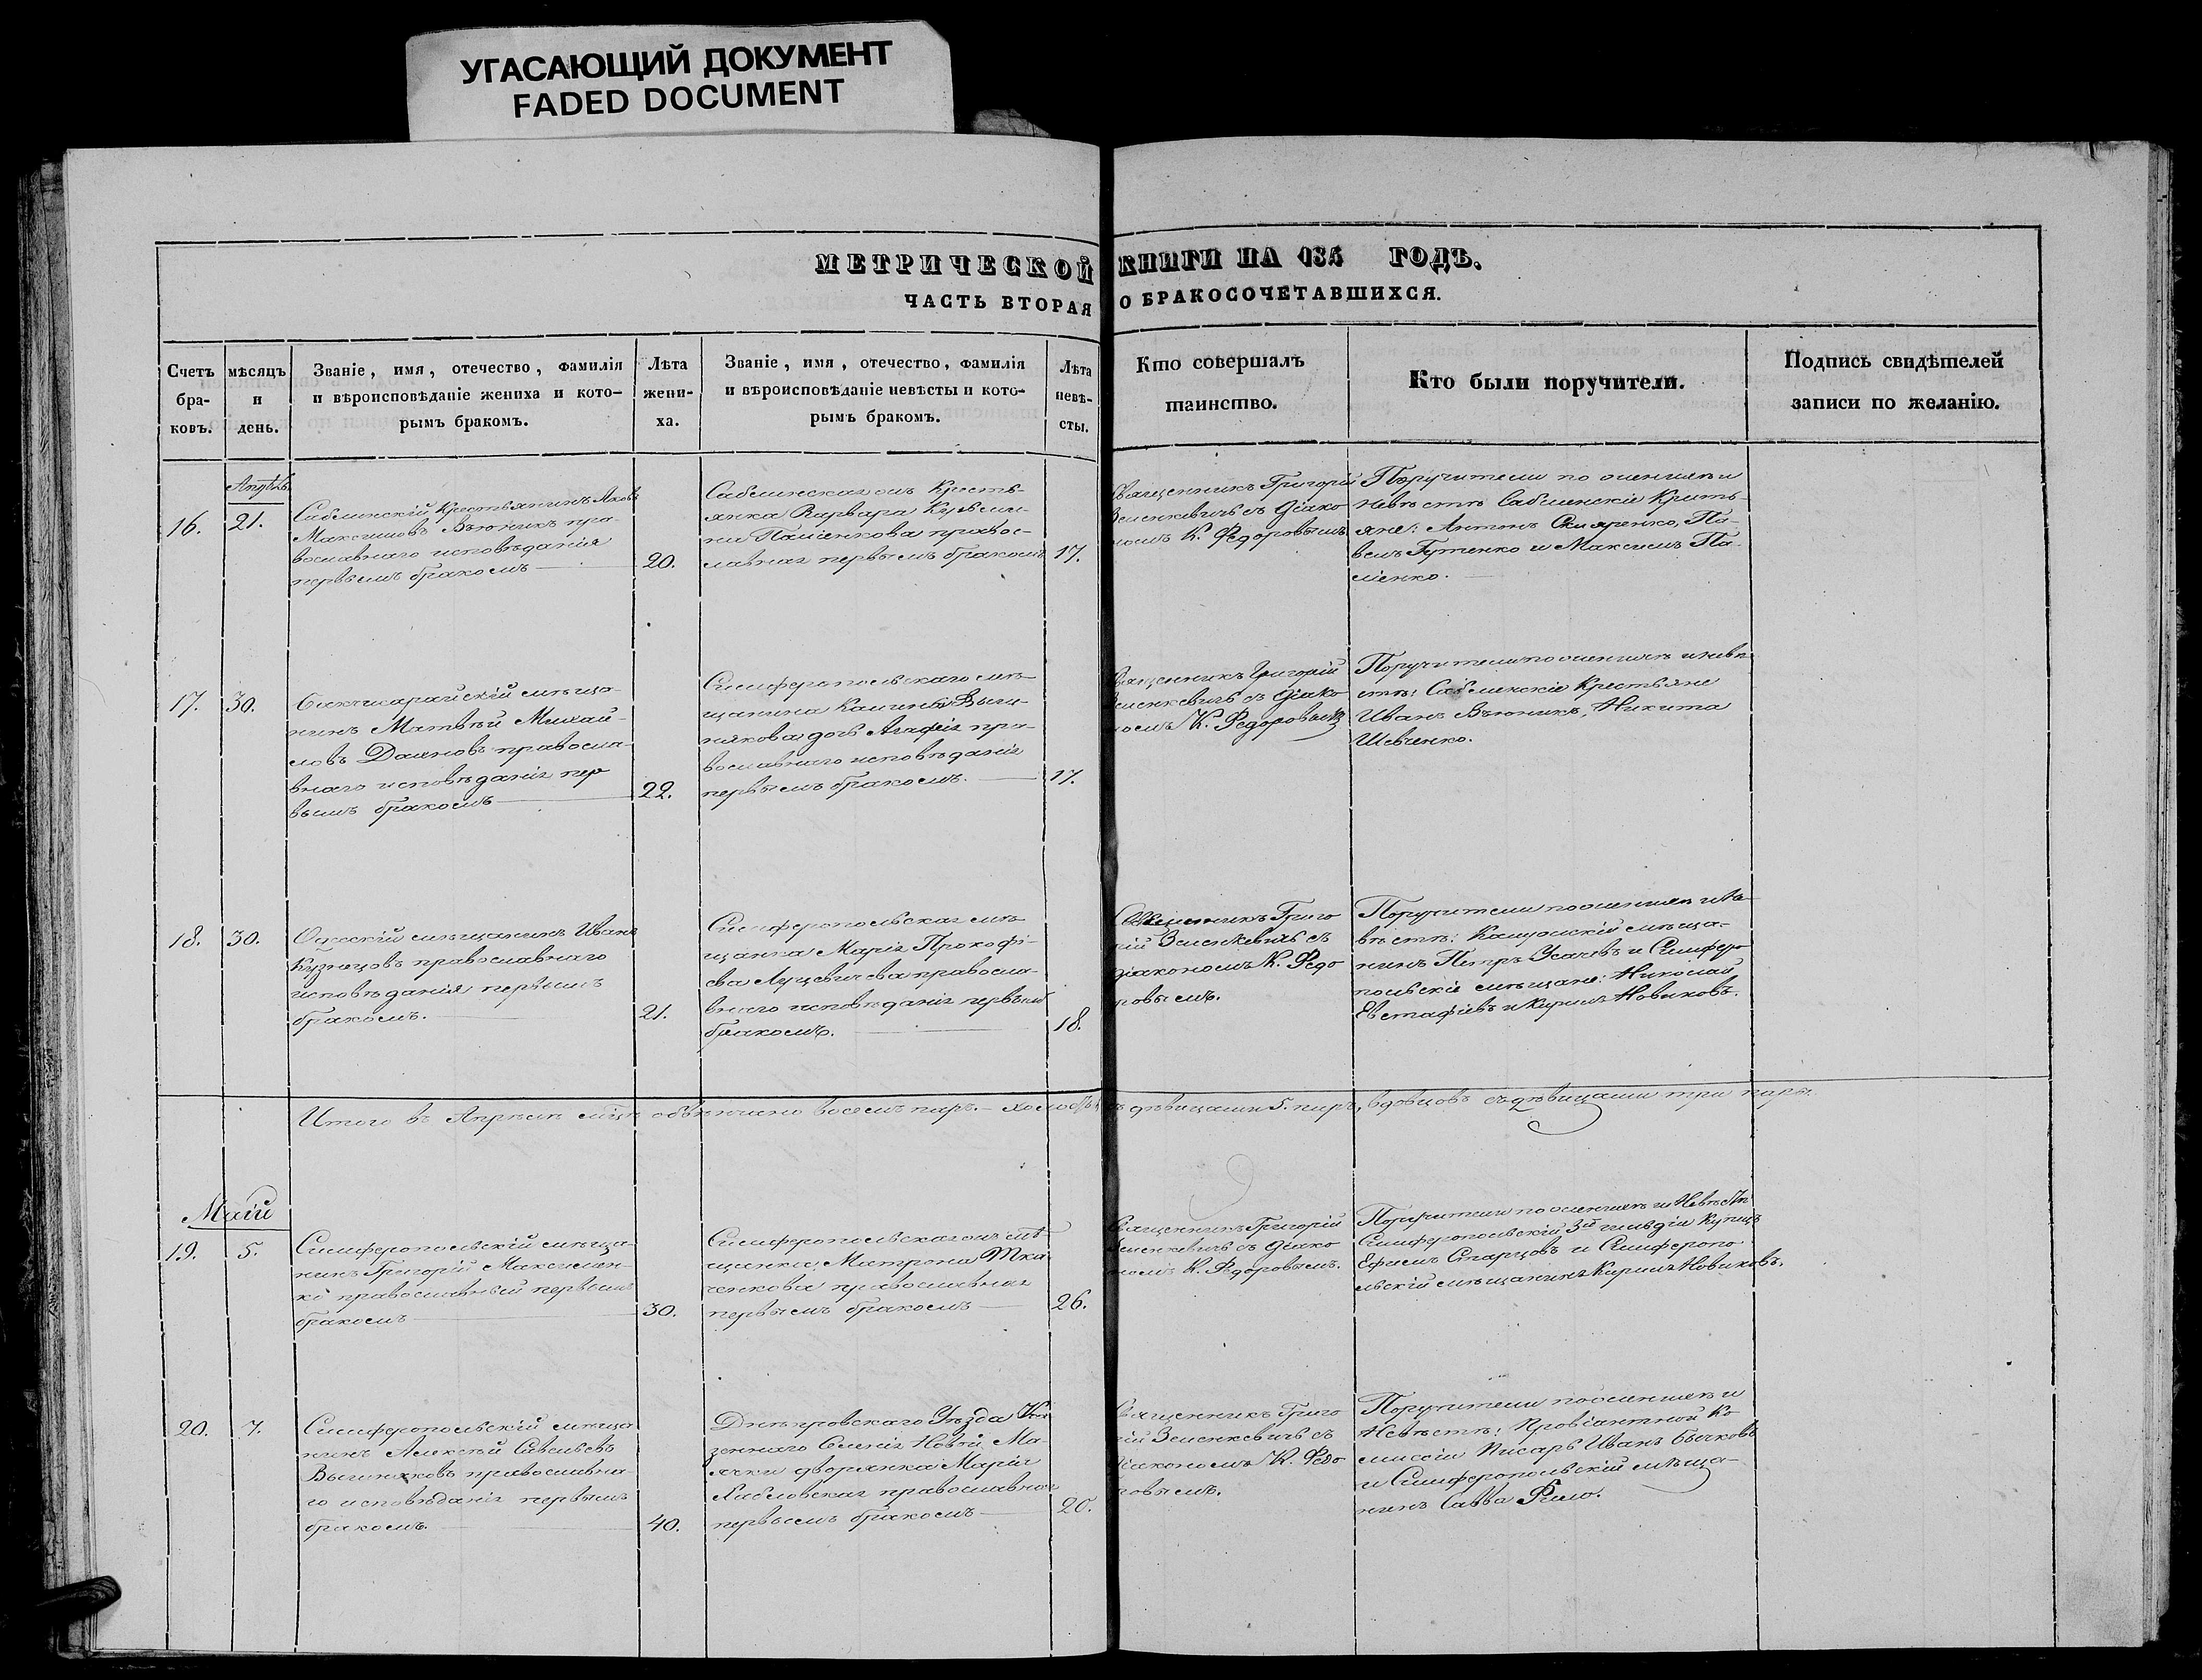 УГАСАЮЩИЙ ДОКУМЕНТ
FADED DOCUMENT
МЕТРИЧЕСКОЙ КНИГИ НА 184 ГОДЪ.
ЧАСТЬ ВТОРАЯ О БРАКОСОЧЕТАВШИХСЯ.
Счетъ
бра-
ковъ.
мѣсяцъ
и
день.
Званіе, имя, отечество, фамилія
и вѣроисповѣданіе жениха и кото-
рымъ бракомъ.
Лѣта
жени-
ха.
Званіе, имя, отечество, фамилія
и вѣроисповѣданіе невѣсты и кото-
рымъ бракомъ.
Лѣта
невѣ-
сты.
Кто совершалъ
таинство.
Кто были поручители.
Подпись свидѣтелей
записи по желанію.
16.
21.
Саблинскій Крестьянинъ Яковъ
Максимовъ Вьюникъ пра-
вославнаго исповѣданія
первымъ бракомъ
20.
Саблинская Кресть-
янка Варвара
православ-
лавная первымъ бракомъ
17.
Священникъ Григорій
Зенкевичъ съ Діако
номъ К. Федоровымъ
Поручители по женихѣ и
невѣстѣ Саблинскіе Кресть-
яне: Антонъ Скляренко, Па-
велъ Гутенко и Максимъ Па-
17.
30.
Бахчисарайскій мѣща-
нинъ Матвѣй Михай-
ловъ православ-
внаго исповѣданія пер
вымъ бракомъ
22.
Симферопольскаго мѣ-
щанина
дочь Агафія пра-
вославнаго исповѣданія
первымъ бракомъ.
17.
Священникъ Григорій
Зенкевичъ съ Діако
номъ К. Федоровымъ
Поручители по женихѣ и невѣ
стѣ: Саблинскіе Крестьяне
Иванъ Вьюникъ, Никита
Шевченко.
18.
30.
Одесскій мѣщанинъ Иванъ
Кузнецовъ православнаго
исповѣданія первымъ
бракомъ.
21.
Симферопольская мѣ-
щанка Марія Прокофі-
ева Луцевичева правосла-
внаго исповѣданія первымъ
бракомъ.
18.
Священникъ Григо
рій Зенкевичъ съ
діакономъ К. Федо
ровымъ.
Поручители по женихѣ и не-
вѣстѣ: мѣща-
нинъ Петръ Усачевъ и Симферо
польскіе мѣщане: Николай
Евстафіевъ и Кирилъ Новиковъ.
Итого въ Апрѣлѣ м-цѣ обвѣнчано восемь паръ. – съ дѣвицами 5. паръ, вдовцовъ съ дѣвицами три пары.
Маій
19.
5.
Симферопольскій мѣща-
нинъ Григорій Максимен-
ко православный первымъ
бракомъ
30.
Симферопольская мѣ-
щанка Матрона Тка
ченкова православная
первымъ бракомъ
26.
Священникъ Григорій
Зенкевичъ съ Діако
номъ К. Федоровымъ.
Поручители по женихѣ и Невѣстѣ
Симферопольскій 3й гильдіи Купецъ
Ефимъ Старцовъ и Симферопо
льскій мѣщанинъ Кирилъ Новиковъ.
20.
7.
Симферопольскій мѣща
нинъ Алексѣй Савельевъ
православна-
го исповѣданія первымъ
бракомъ.
40.
Днѣпровскаго Уѣзда Ка
зеннаго Селенія Новой Ма-
ячки дворянка Марія
православная
первымъ бракомъ
20.
Священникъ Григо
рій Зенкевичъ съ
Діакономъ К. Федо
ровымъ.
Поручители по женихѣ и
Невѣстѣ: Провіантной Ко
миссіи Писарь Иванъ Бычковъ
и Симферопольскій мѣща-
нинъ Савва